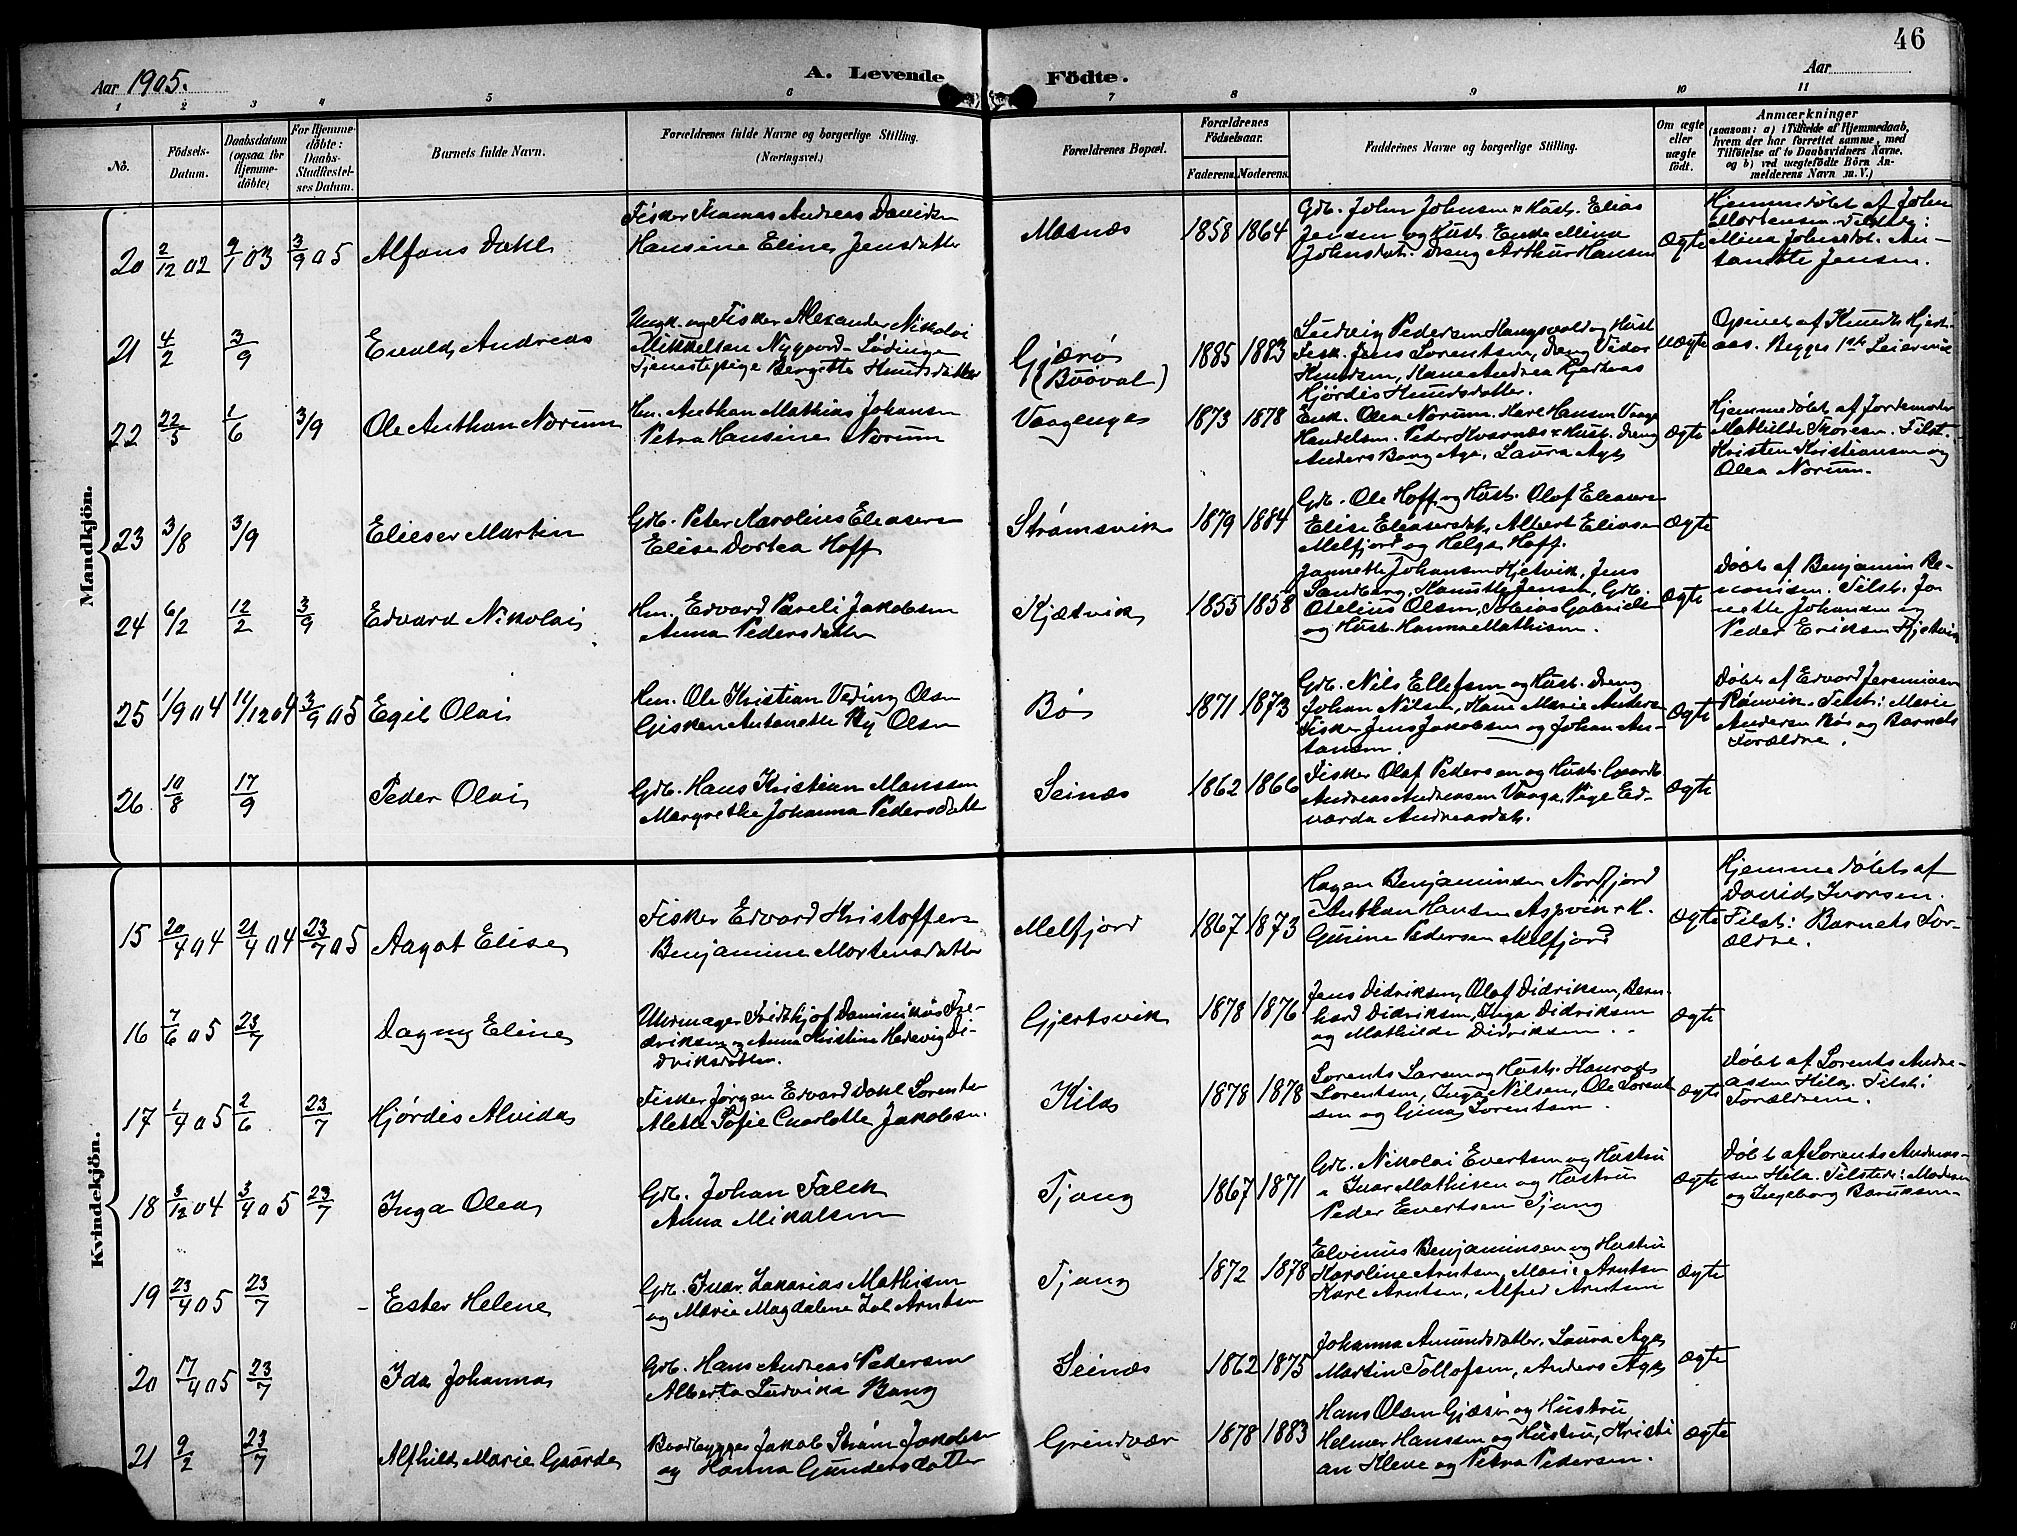 46
Aar 1905.
A. Levende Födte.
Aar
1 2 3 4 5 6 7 8 9 10 11
No.
Födsels-Datum.
Daabsdatum (ogsaa for Hjemme-döbte)
For Hjemme-döbte: Daabs-Stadfæstel-ses Datum.
Barnets fulde Navn.
Forældrenes fulde Navne og borgerlige Stilling.
(Næringsvei.)
Forældrenes Bopæl.
Forældrenes Födselsaar.
Faderens. Moderens.
Faddernes Navne og borgerlige Stilling.
Om ægte eller uægte födt.
Anmærkninger
(saasom: a) i Tilfælde af Hjemmedaab,
hvem der har forrettet samme, med
Tilföielse af to Daabsvidners Navne,
og b) ved uegtefödte Börn An-
melderens Navn m. V.)
Mandkjön.
20 2/12 02 9/1 03 3/9 05 Alfons Dahl
Fisker Thomas Andreas Davidsen
Hansine Eline Jensdatter
Mesnæs 1858 1864
Gdb. John Johnsen & Hust. Elias
Jensen og Hust. Enke Mina
Johnsdat. Dreng Arthur Hansen
Ægte
Hjemmedøbt af John
Mortensen. Tilsted:
Mina Johnsdat. An-
tanette Jensen.
21 4/2 3/9 Evald Andreas
Ungk. og Fisker Alexander Nikolai
Mikkelsen Nygaard Lødingen
Tjenestepige Bergitte Knudsdatter
Gjærø
(Buøval)
1885 1883
Ludvig Pedersen Haugsvold og Hust
Fisk. Jens Lorentsen, Dreng Vidar
Knudsen, Kone Andrea Kjerkaas
Hjørdis Knudsdatter.
uægte
Opgivet af Knud Kjerk-
aas. Begges 1ste Leiermaal
22 22/5 1/6 3/9 Ole Anthon Norum
Hm. Anthon Mathias Johansen
Petra Hansine Norum
Vaagenges 1873 1878
Enk. Olea Norum. Karl Hansen Vaaga
Handelsm. Peder Kvarnæs & Hust. Dreng
Anders Bang Aga, Laura Aga
Ægte
Hjemmedøbt af Jordemoder
Mathilde Thoresen. Tilst.
Kristen Kristiansen og
Olea Norum.
23 3/8 3/9 Elieser Martin
Gdb. Peter Karolius Eleasersen
Elise Dortea Hoff
Strømsvik 1879 1884
Gdb. Ole Hoff og Hust. Olaf Eleasersen
Elise Eleasersdat. Albert Eliasen
Melfjord og Helga Hoff.
Ægte
24 6/2 12/2 3/9 Edvard Nikolai
Hm. Edvard Pareli Jakobsen
Anna Pedersdatter
Kjetvik 1855 1858
Jannette Johansen Kjetvik, Jens
Sandberg, Hanitte Jensen, Gdb.
Otelius Olsen, Tobias Gabrielsen
og Hust. Hanna Mathisen.
Ægte
Døbt af Benjamin Be-
nonisen. Tilst. Ja-
nette Johansen og
Peder Eriksen Kjetvik
25 1/9 04 11/12 04 3/9 05 Egil Olai
Hm. Ole Kristian Veding Olsen
Gisken Antonette By Olsen
Bø 1871 1873
Gdb. Nils Ellefsen og Hust. Dreng
Johan Nilsen, Hans Marie Andersen
Fisker Jens Jakobsen og Johan An-
tonsen.
Ægte
Døbt af Edvard Jeremiassen
Rønvik. Tilst: Marie
Andersen Bø og Barnets
Forældre.
26 10/8 17/9 Peder Olai
Gdb. Hans Kristian Monssen
Margrethe Johanna Pedersdatter
Seinæs 1862 1866
Fisker Olaf Pedersen og Hust. Gaardb.
Andreas Andreassen Vaaga, Pige Ed-
varda Andreasdat.
Ægte
Kvindekjön.
15 20/4 04 21/4 04 23/7 05 Aagot Elise
Fisker Edvard Kristoffersen
Benjamine Mortensdatter
Melfjord 1867 1873
Hagen Benjaminsen Nordfjord
Anthon Hansen Aspvik & H.
Gurine Pedersen Melfjord
Ægte
Hjemmedøbt af
David Ivarsen.
Tilst: Barnets For-
ældre.
16 7/6 05 23/7 Dagny Eline
Uhrmager Fridthjof Dominikus Fre-
driksen og Anna Kristine Hedevig Di-
driksdatter.
Gjertsvik 1878 1876
Jens Didriksen, Olaf Didriksen, Bern-
hard Didriksen, Inga Didriksen
og Mathilde Didriksen.
Ægte
17 1/4 05 2/6 23/7 Hjørdis Alvida
Fisker Jørgen Edvard Dahl Lorentsen
Mette Sofie Charlotte Jakobsen.
Kila 1878 1878
Lorents Larsen og Hustr. Hanrog
Lorentsen, Inga Nilsen, Ole Lorent
sen og Gina Lorentsen.
Ægte
Døbt af Lorents Andre-
assen Kila. Tilst:
Forældrene.
18 3/12 04 3/4 05 23/7 Inga Olea
Gdb. Johan Falch
Anna Mikalsen
Tjong 1867 1871
Gdb. Nikolai Evertsen og Hustru
" Ivar Mathisen og Hustru
Peder Evertsen Tjong
Ægte
Døbt af Lorents Andreas-
sen Kila. Tilstede: Moderen
og Ingeborg Baruksen
19 23/4 05 23/7 Ester Helene
Gdb. Ivar Zakarias Mathisen
og Marie Magdalene Zol Arntsen
Tjong 1872 1878
Elvinus Benjaminsen og Hustru
Karoline Arntsen, Marie Arntsen
Karl Arntsen, Alfred Arntsen
Ægte
20 17/4 05 23/7 Ida Johanna
Gdb. Hans Andreas Pedersen
Alberta Ludvika Bang
Seinæs 1862 1875
Johanna Amundsdatter, Laura Aga
Martin Tollofsen, Anders Aga
Ægte
21 9/2 23/7 Alfhild Marie Guorda
Baadbygger Jakob Strøm Jakobsen
og Hanna Gundersdatter
Grindvær 1878 1883
Hans Olsen Gjæsø og Hustru
Helmer Hanssen og Hustru, Kristi
an Kleve og Petra Pedersen.
Ægte